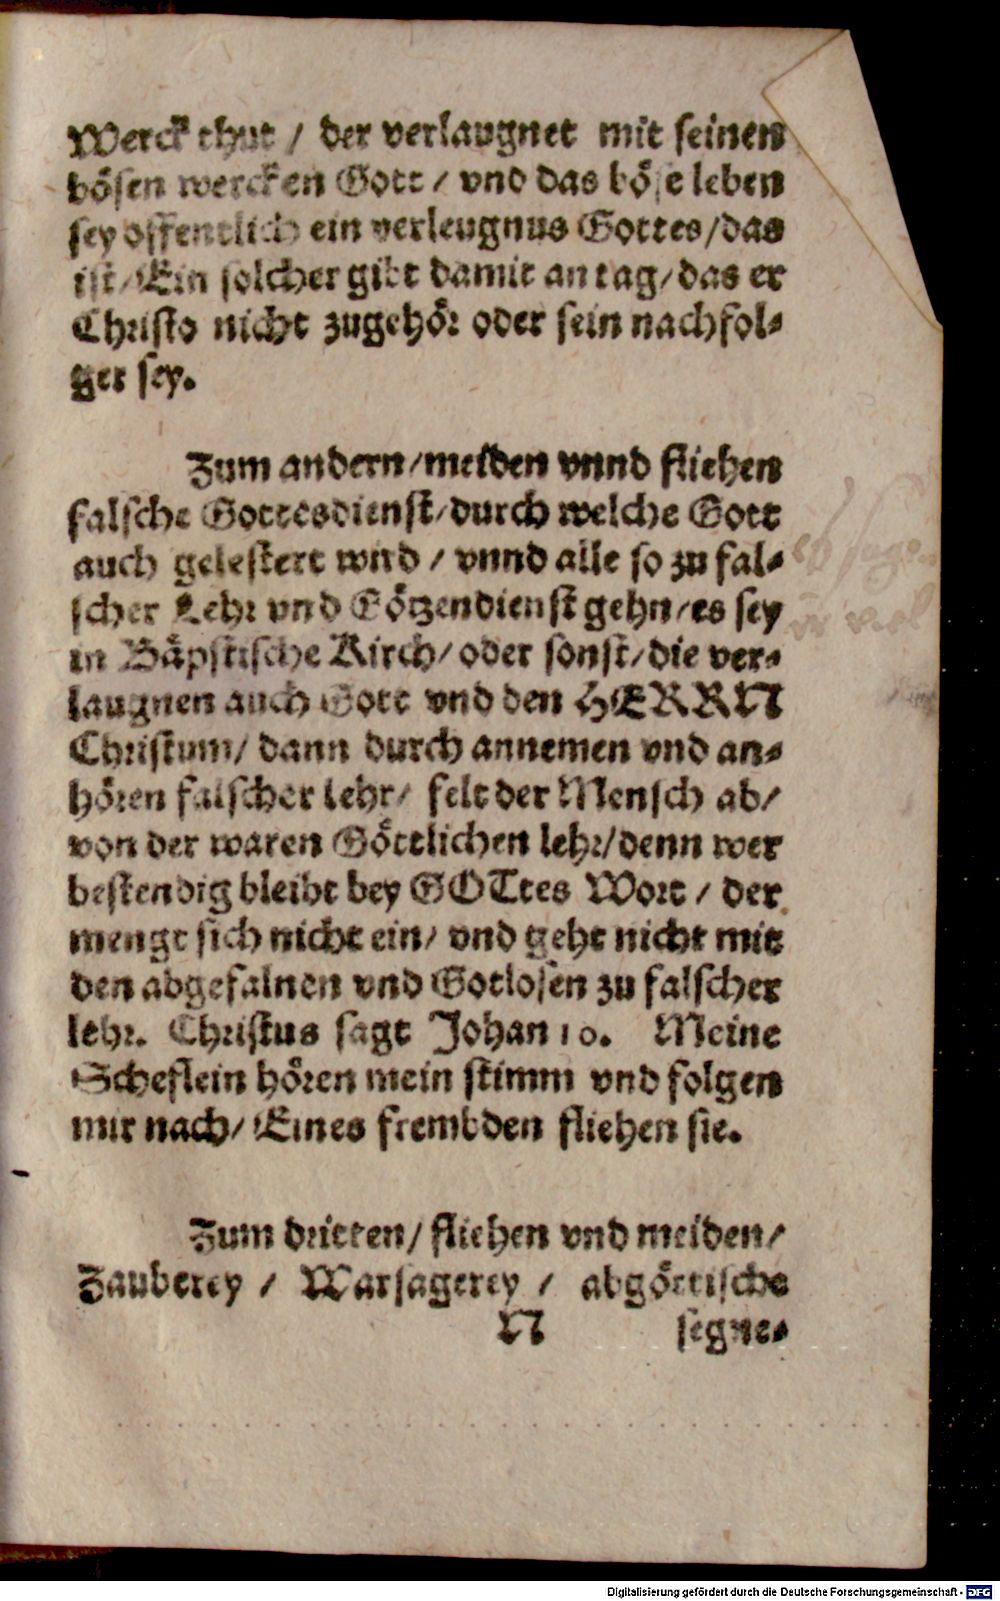 Werck thut / der verlaugnet mit seinen
bösen wercken Gott / vnd das böse leben
sey offentlich ein verleugnus Gottes / das
ist / Ein solcher gibt damit an tag / das er
Christo nicht zugehör oder sein nachfol⸗
ger sey.
Zum andern / meiden vnnd fliehen
falsche Gottesdienst / durch welche Gott
auch gelestert wird / vnnd alle so zu fal⸗
scher Lehr vnd Götzendienst gehn / es sey
in Bäpstische Kirch / oder sonst / die ver⸗
laugnen auch Gott vnd den HERRN
Christum / dann durch annemen vnd an⸗
hören falscher lehr / felt der Mensch ab /
von der waren Göttlichen lehr / denn wer
bestendig bleibt bey GOTtes Wort / der
mengt sich nicht ein / vnd geht nicht mit
den abgefalnen vnd Gotlosen zu falscher
lehr. Christus sagt Johan 10. Meine
Scheflein hören mein stimm vnd folgen
mir nach / Eines frembden fliehen sie.
Zum dritten / fliehen vnd meiden /
Zauberey / Warsagerey / abgöttische
N segne⸗
Digitalisierung gefördert durch die Deutsche Forschungsgemeinschaft - DFG